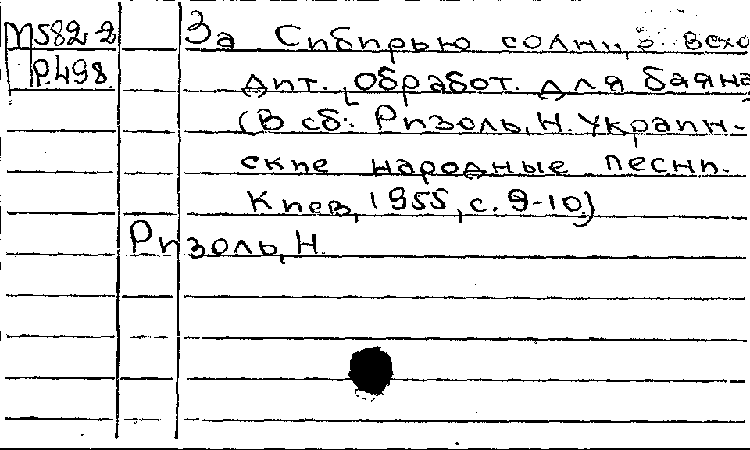 М582-2
Р498
За Сибирью солнце всхо
дит. [Обработ. для баяна
(В сб: Ризоль, Н. Украин-
ские народные песни.
Киев, 1955, с. 9-10)
Ризоль, Н.